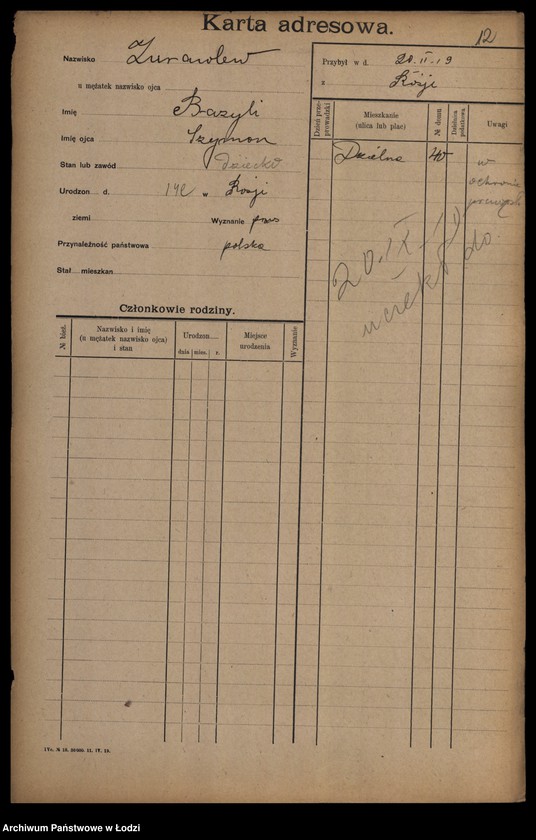 Karta adresowa.
12
Nazwisko Zurawlew
u mężatek nazwisko ojca
Imię Bazyli
Imię ojca Szymon
Stan lub zawód dziecko
Urodzon d. w Rosji
ziemi Wyznanie praw
Przynależność państwowa polska
Stał mieszkan
Przybył w d. 20.II.19
z Rosji
Dzień przeprowadzki
Mieszkanie
(ulica lub plac)
№ domu
Dzielnica podatkowa
Uwagi
Dzielna 40
w
ochronie
20.IX.19
uciekł do.
Członkowie rodziny.
№ bież.
Nazwisko i imię
(u mężatek nazwisko ojca)
i stan
Urodzon
dnia mies. r.
Miejsce
urodzenia
Wyznanie
Archiwum Państwowe w Łodzi